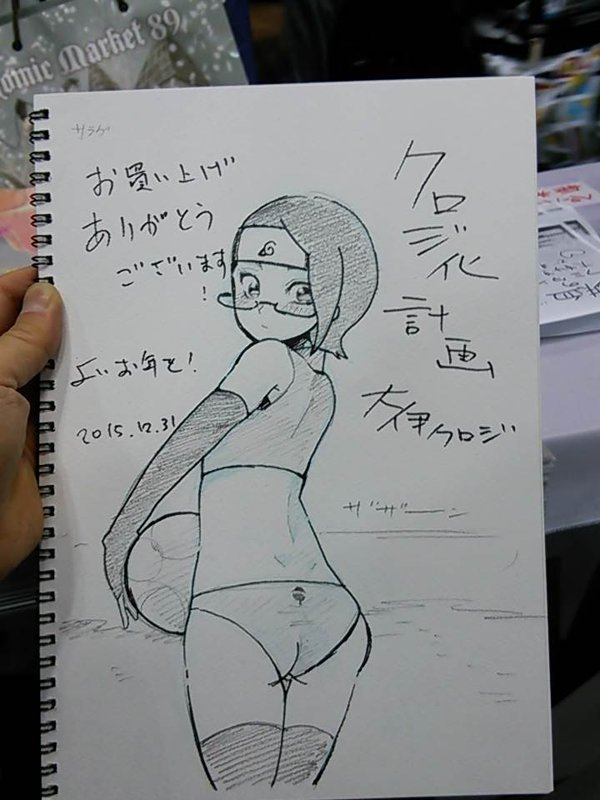 Comic Market 89
サラダ
お買い上げ
ありがとう
ございます
!
よいお年を!
2015.12.31
クロ
ジ化
計
画
大伊クロジ
ザザーン